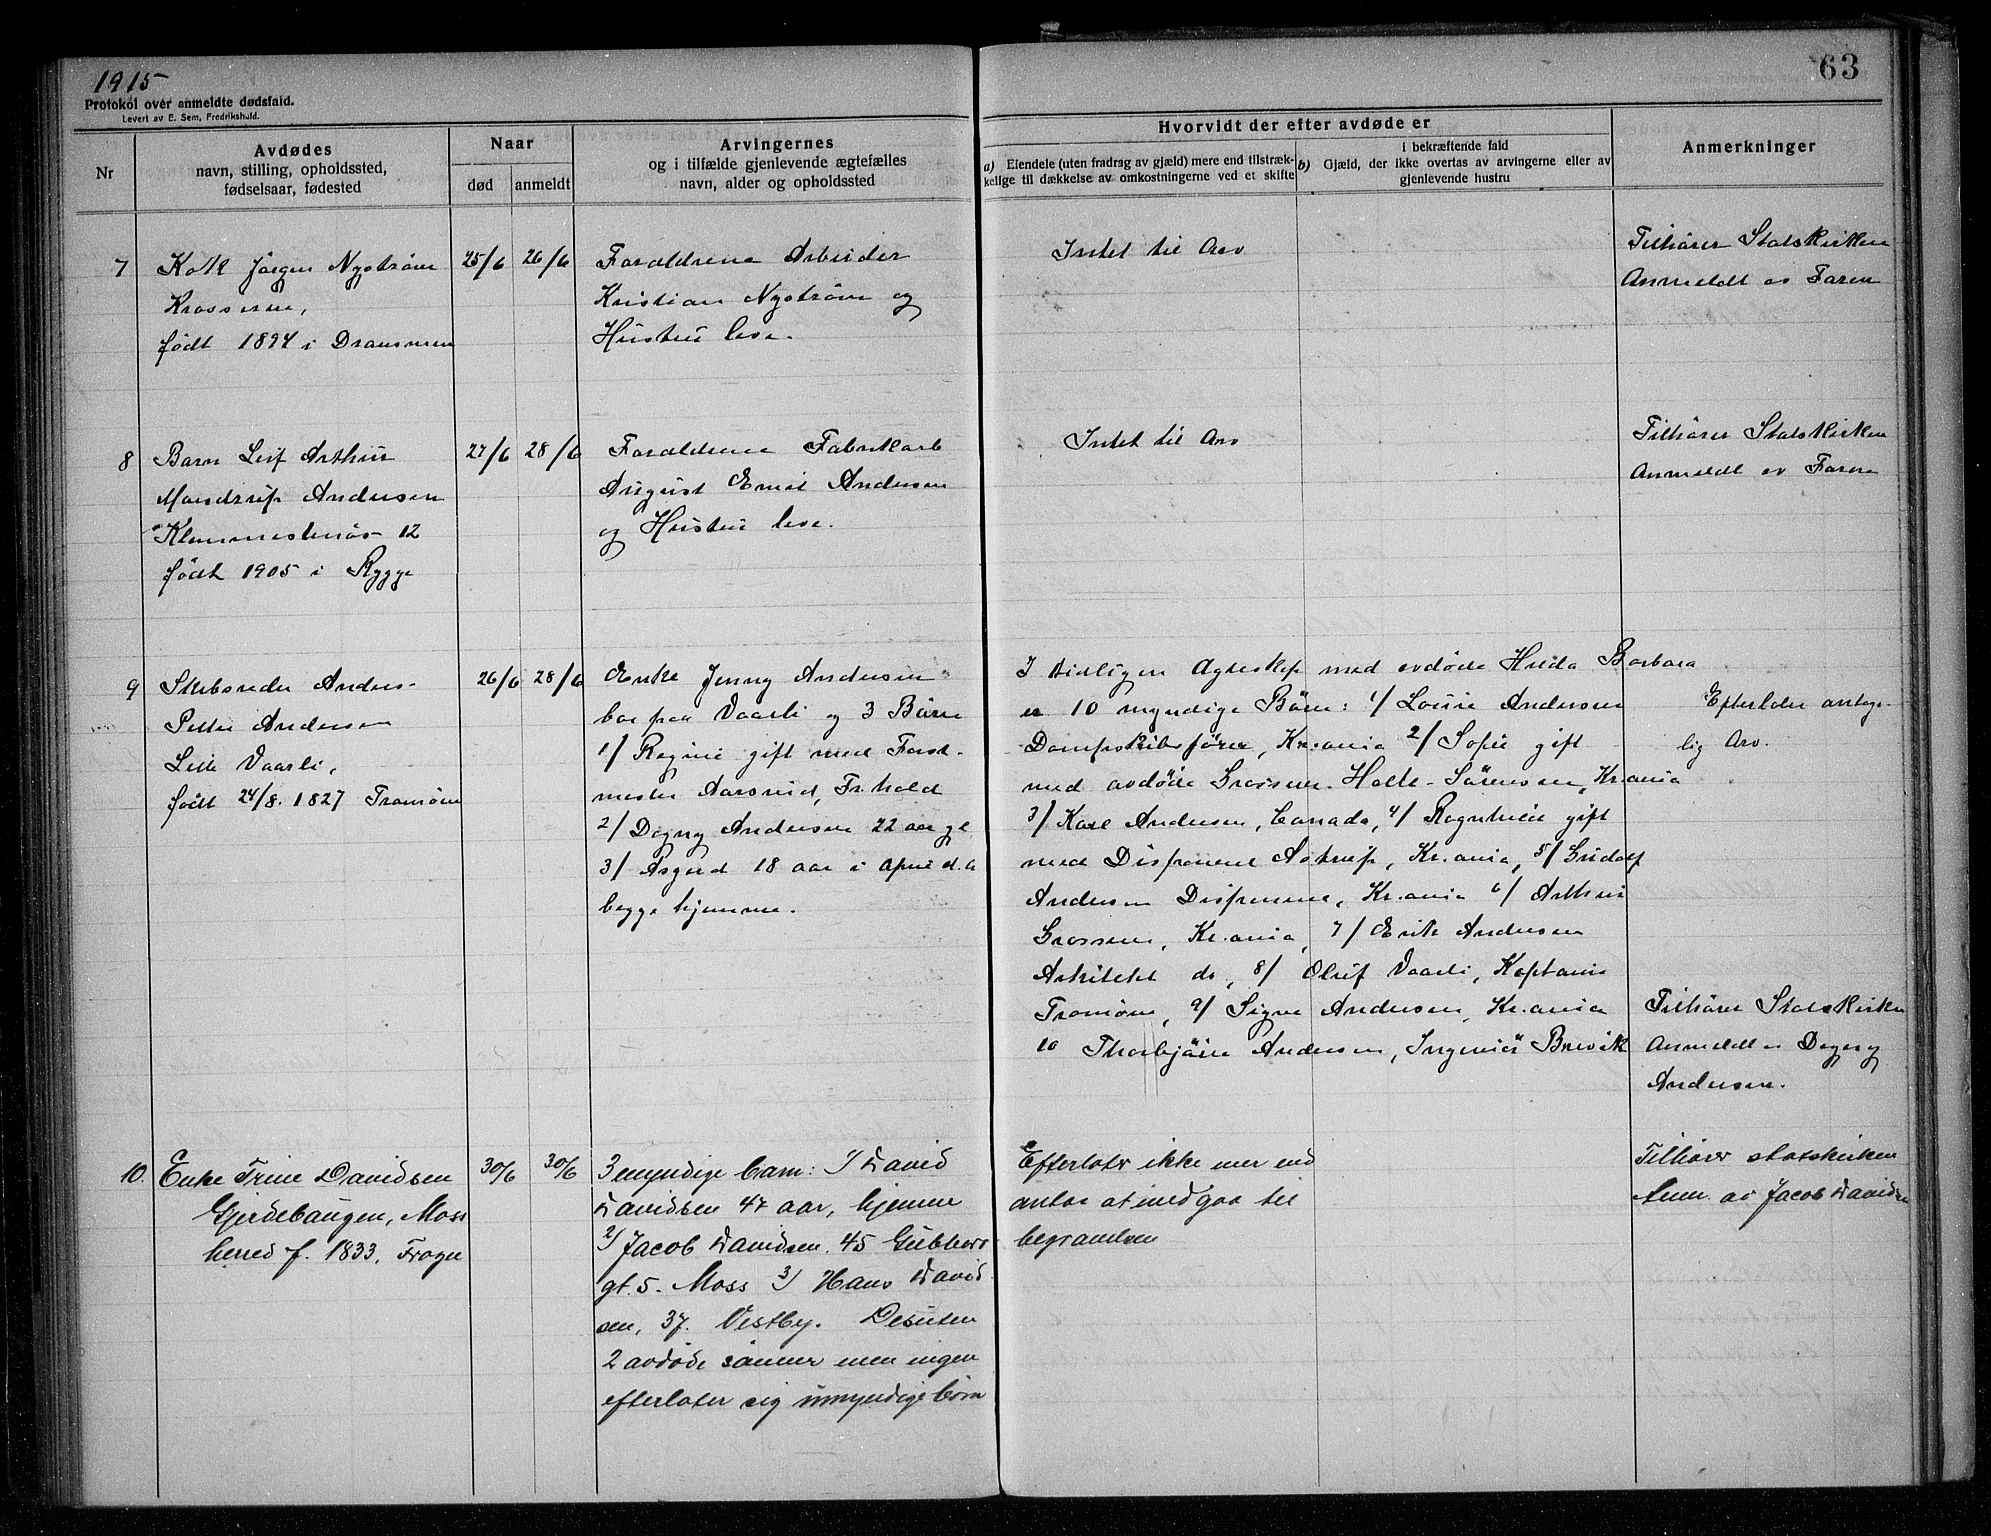 1915
63
Protokol over anmeldte dødsfald.
Levert av E. Sem, Fredrikshald.
Nr
Avdødes
navn, stilling, opholdssted,
fødselsaar, fødested
Naar
død
anmeldt
Arvingernes
og i tilfælde gjenlevende ægtefælles
navn, alder og opholdssted
Hvorvidt der efter avdøde er
a) Eiendele (uten fradrag av gjæld) mere end tilstræk-
kelige til dækkelse av omkostningerne ved et skifte
i bekræftende fald
b) Gjæld, der ikke overtas av arvingerne eller av
gjenlevende hustru
Anmerkninger
7
Kokk Jörgen Nyström
Krosseren,
født 1894 i Drammen
25/6
26/6
Foraldrene Arbeider
Kristian Nyström og
Hustru leve.
Intet til Arv
Tilhører Statskirken
Anmeldt av Faren
8
Barn Leif Arthur
Mandrup Andersen
12
født 1905 i Rygge
27/6
28/6
Foraldrene Fabrikarb
August Emil Andersen
og Hustru leve.
Intet til Arv
Tilhører Statskirken
Anmeldt av Faren
9
Skibsreder Anders
Petter Andersen
Lille Vaarli,
født 24/8. 1827 Tromøen
26/6
28/6
Enke Jenny Andersen
bor paa Vaarli og 3 Börn
1/ Regine gift med Forst-
mester Aarsrud, Fr.hald
2/ Dagny Andersen 22 aar gl
3/ Asgerd 18 aar i april d.a
begge hjemme.
I tidligere Ægteskap med avdöde Hulda Barbara
er 10 myndige Börn: 1/ Louis Andersen
Dampskibsförer, Kr.ania 2/ Sofie gift
med avdöde Grosserer Holte-Sörensen, Kr.ania
3/ Karl Andersen, Canada, 4/ Ragnhild gift
med Disponent Astrup, Kr.ania, 5/
Andersen Disponent, Kr.ania 6/ Arthur
Grosserer, Kr.ania, 7/ Erik Andersen
Arkitekt do, 8/ Oluf Vaarli, Kaptein
Tromöen, 9/ Signe Andersen, Kr.ania
10 Thorbjörn Andersen, Ingeniör Brevik
Efterlder antage-
lig Arv.
Tilhører Statskirken
Anmeldt av Dagny
Andersen.
10.
Enke Trine Davidsen
Gjerdebaugen, Moss
herred f. 1833, Frogn
30/6
30/6
3 myndige barn: 1/ David
Davidsen 47 aar, hjemme
2/ Jacob Davidsen. 45 Gubberø
gt. 5. Moss 3/ Hans David-
sen, 37. Vestby. Desuten
2 avdøde sønner men ingen
efterlater sig umyndige børn
Efterlater ikke mer end
antas at medgaa til
begravelsen
Tilhører statskirken
Anm. av Jacob Davidsen